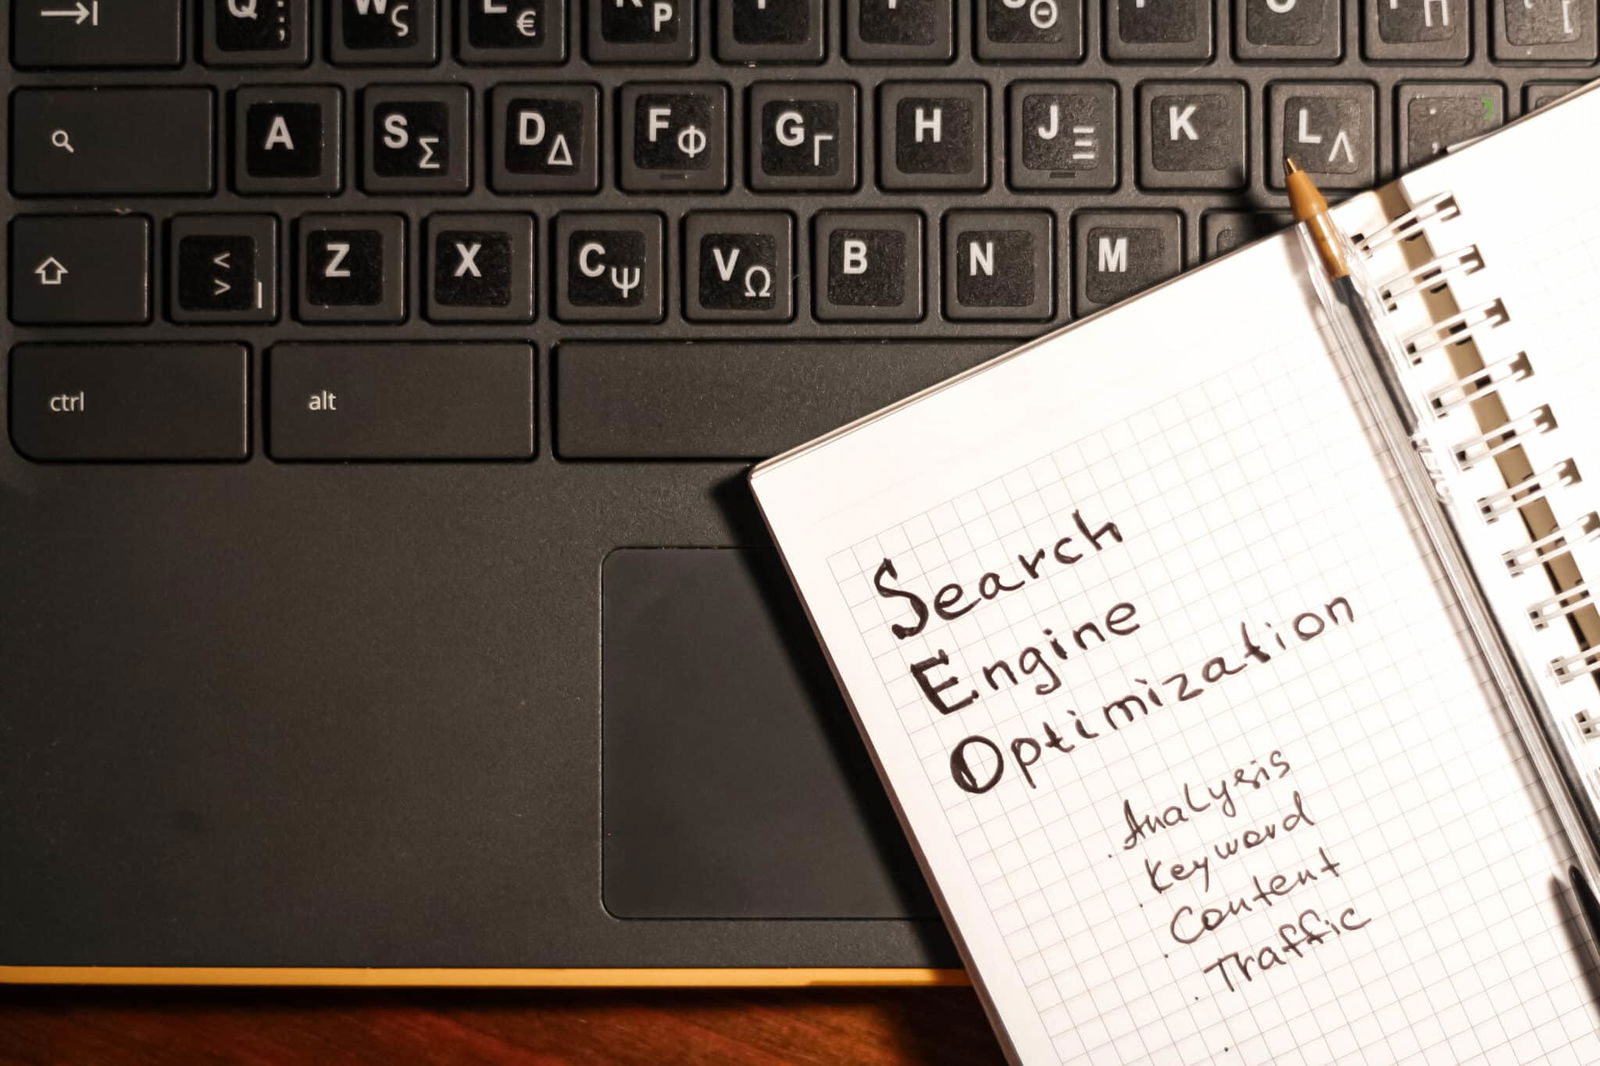 Q ;
W ς
E €
R Ρ
A
S Σ
D Δ
F Φ
G Γ
H
J Ξ
K
L Λ
< > |
Z
X
C Ψ
V Ω
B
N
M
ctrl
alt
Search
Engine
Optimization
. Analysis
. Keyword
. Content
. Traffic
.